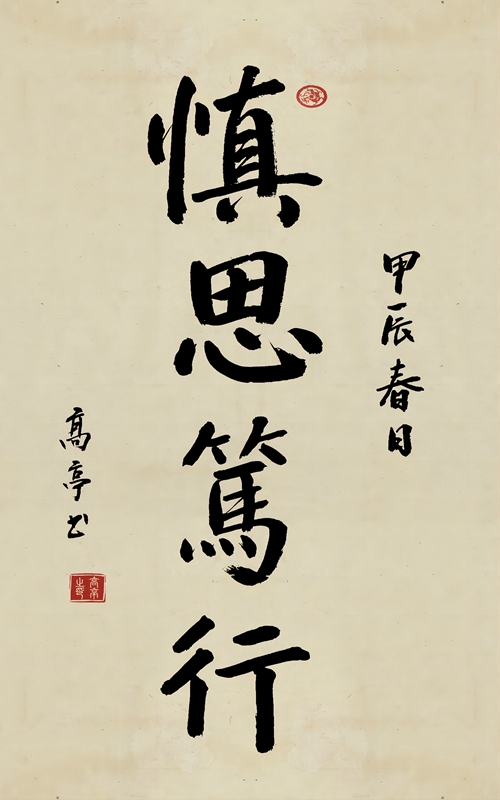 甲辰春日
慎思篤行
高亭书